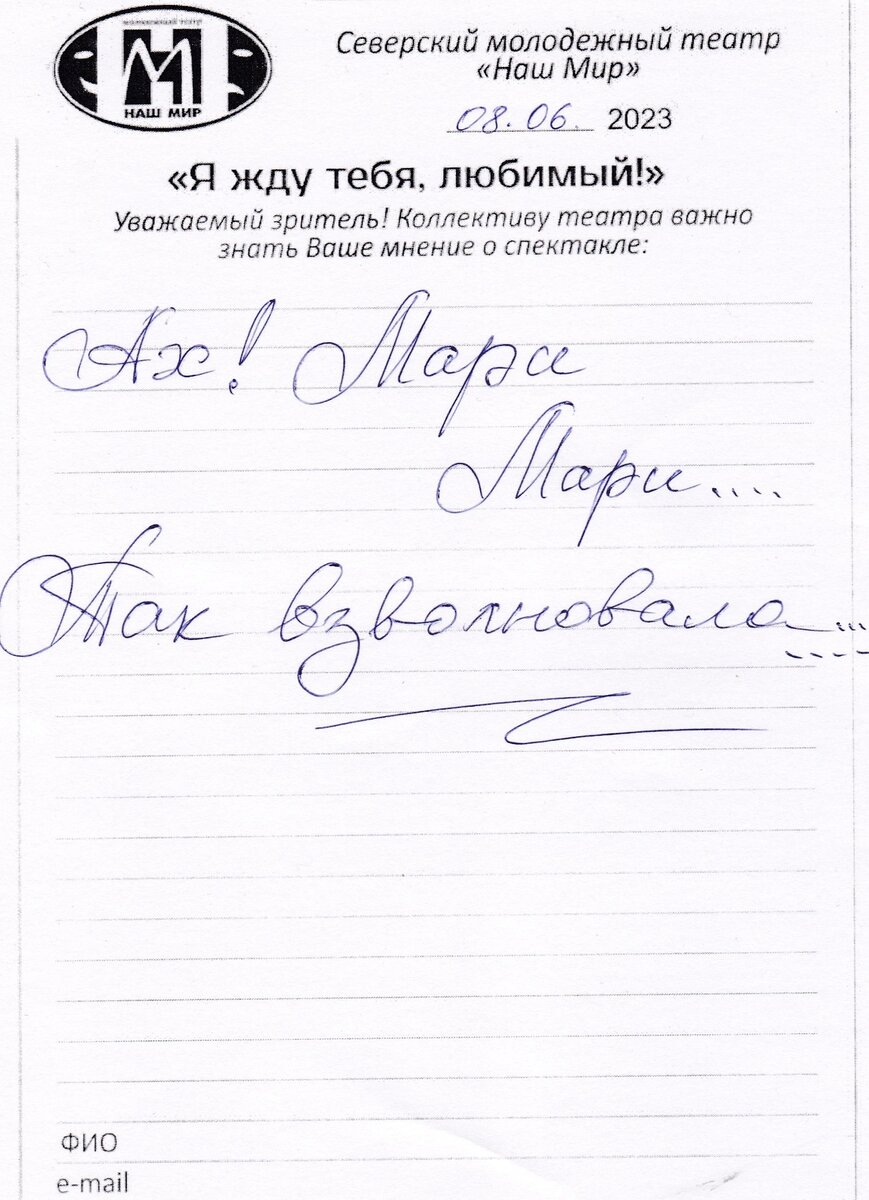 молодежный театр
НАШ МИР
Северский молодежный театр
«Наш Мир»
08.06. 2023
«Я жду тебя, любимый!»
Уважаемый зритель! Коллективу театра важно
знать Ваше мнение о спектакле:
Ах! Мари
Мари....
Так взволновала...
ФИО
e-mail